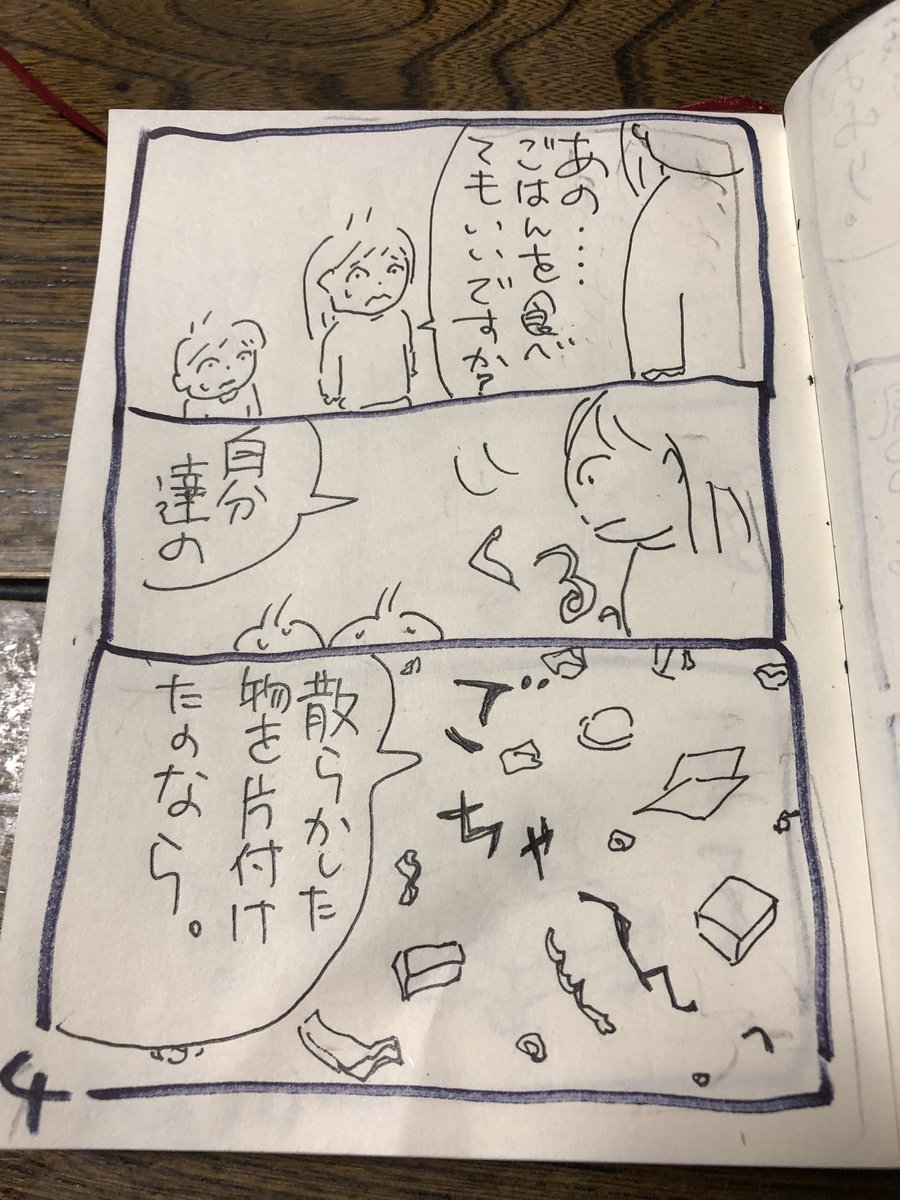 あの....
ごはんを食べ
てもいいですか?
くる。
自分
達の
ごちゃ
散らかした
物を片付け
たのなら。
4